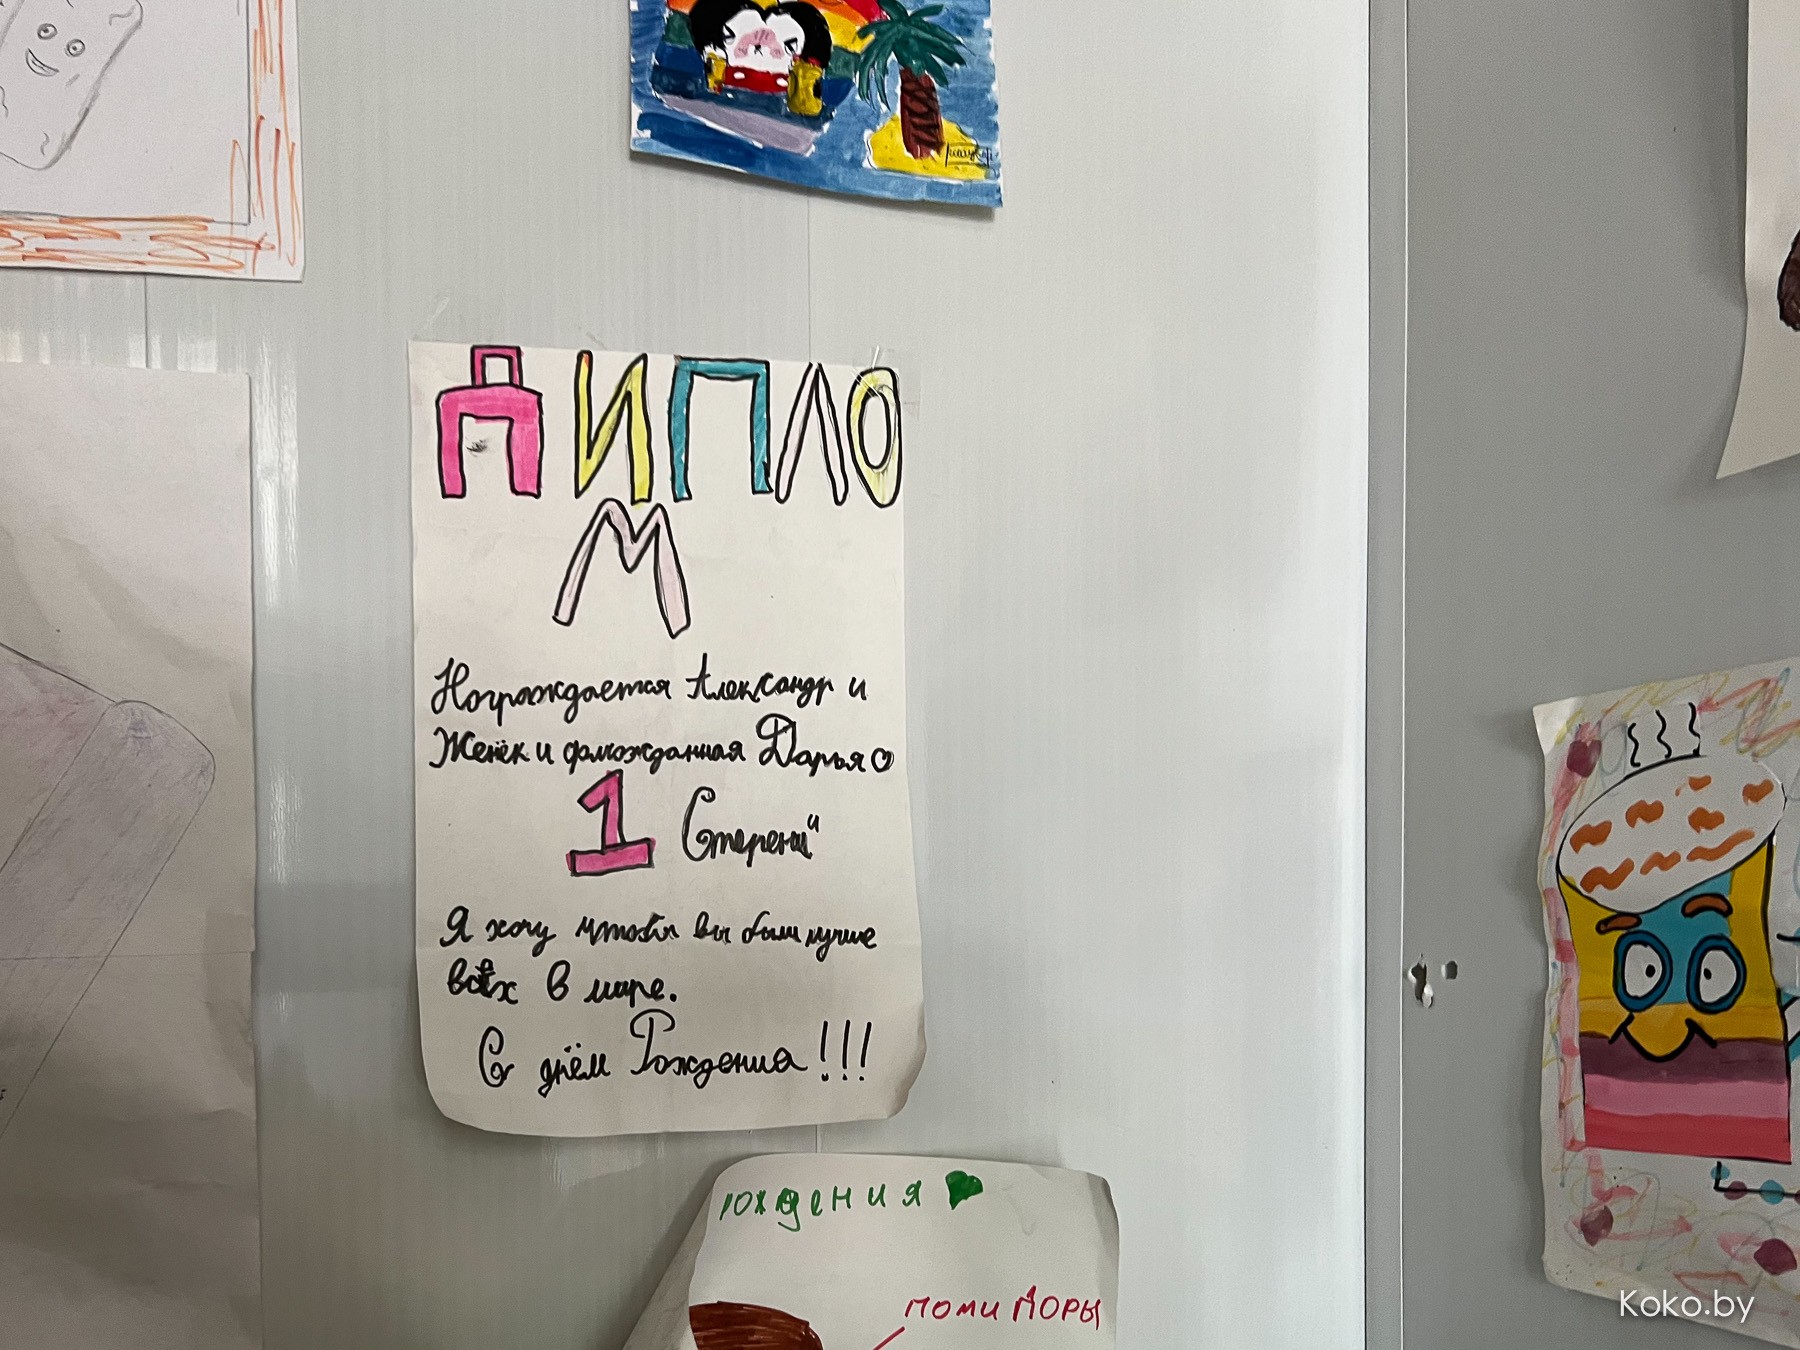 ДИПЛО
М
Награждается Александр и
Женёк и Дарья
1 Степени
Я хочу чтобы вы были лучше
всех в мире.
С днём Рождения!!!
рождения
помидоры
Koko.by